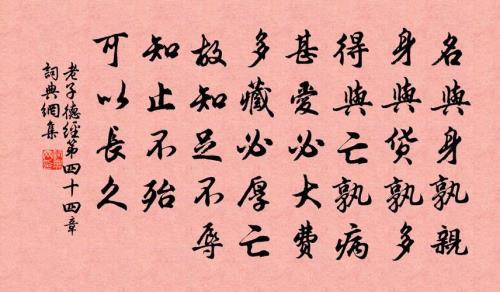 名與身孰親
身與货孰多
得與亡孰病
甚愛必大費
多藏必厚亡
故知足不辱
知止不殆
可以長久
老子德經第四十四章
詞典網集